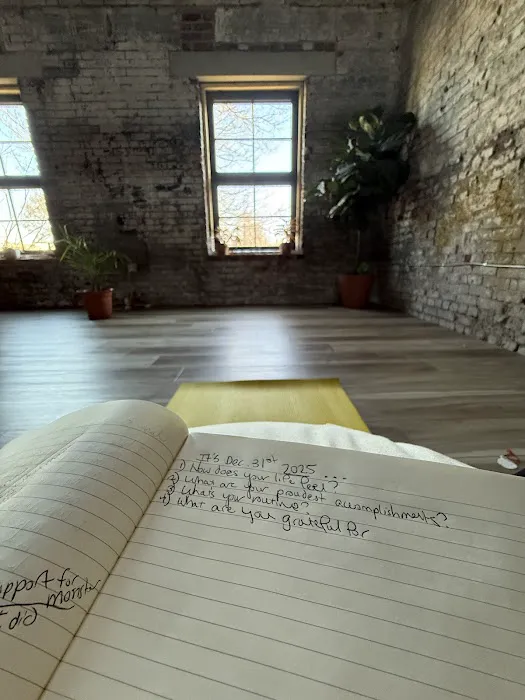 It's Dec 31st 2025 ...
1) How does your life feel?
2) What are your proudest accomplishments?
3) What's your routine?
4) What are you grateful for
pport for
did